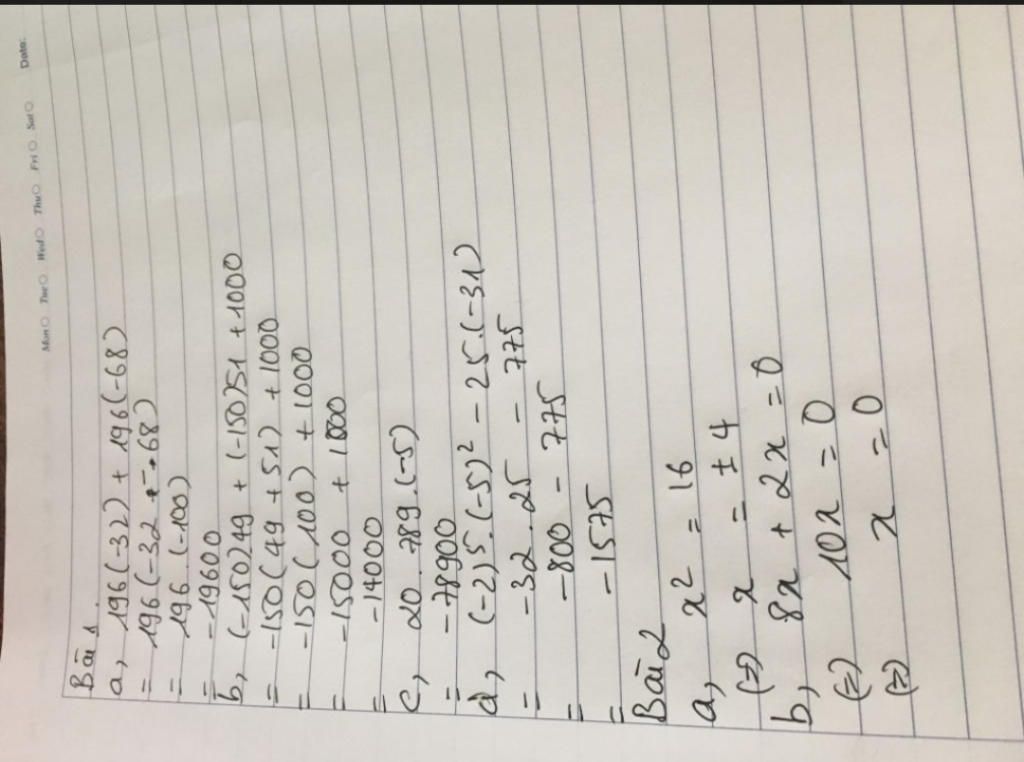 Mon Tue Wed Thu Fri Sat Date:
Bài 1
a, 196(-32) + 196(-68)
= 196(-32 - 68)
= 196.(-100)
= -19600
b, (-150)49 + (-150)51 + 1000
= -150(49 + 51) + 1000
= -150(100) + 1000
= -15000 + 1000
= -14000
c, 20.789.(-5)
= -78900
d, (-2)5.(-5)² - 25.(-31)
= -32.25 - 775
= -800 - 775
= -1575
Bài 2
a, x² = 16
(=) x = ±4
b, 8x + 2x = 0
(=) 10x = 0
(=) x = 0